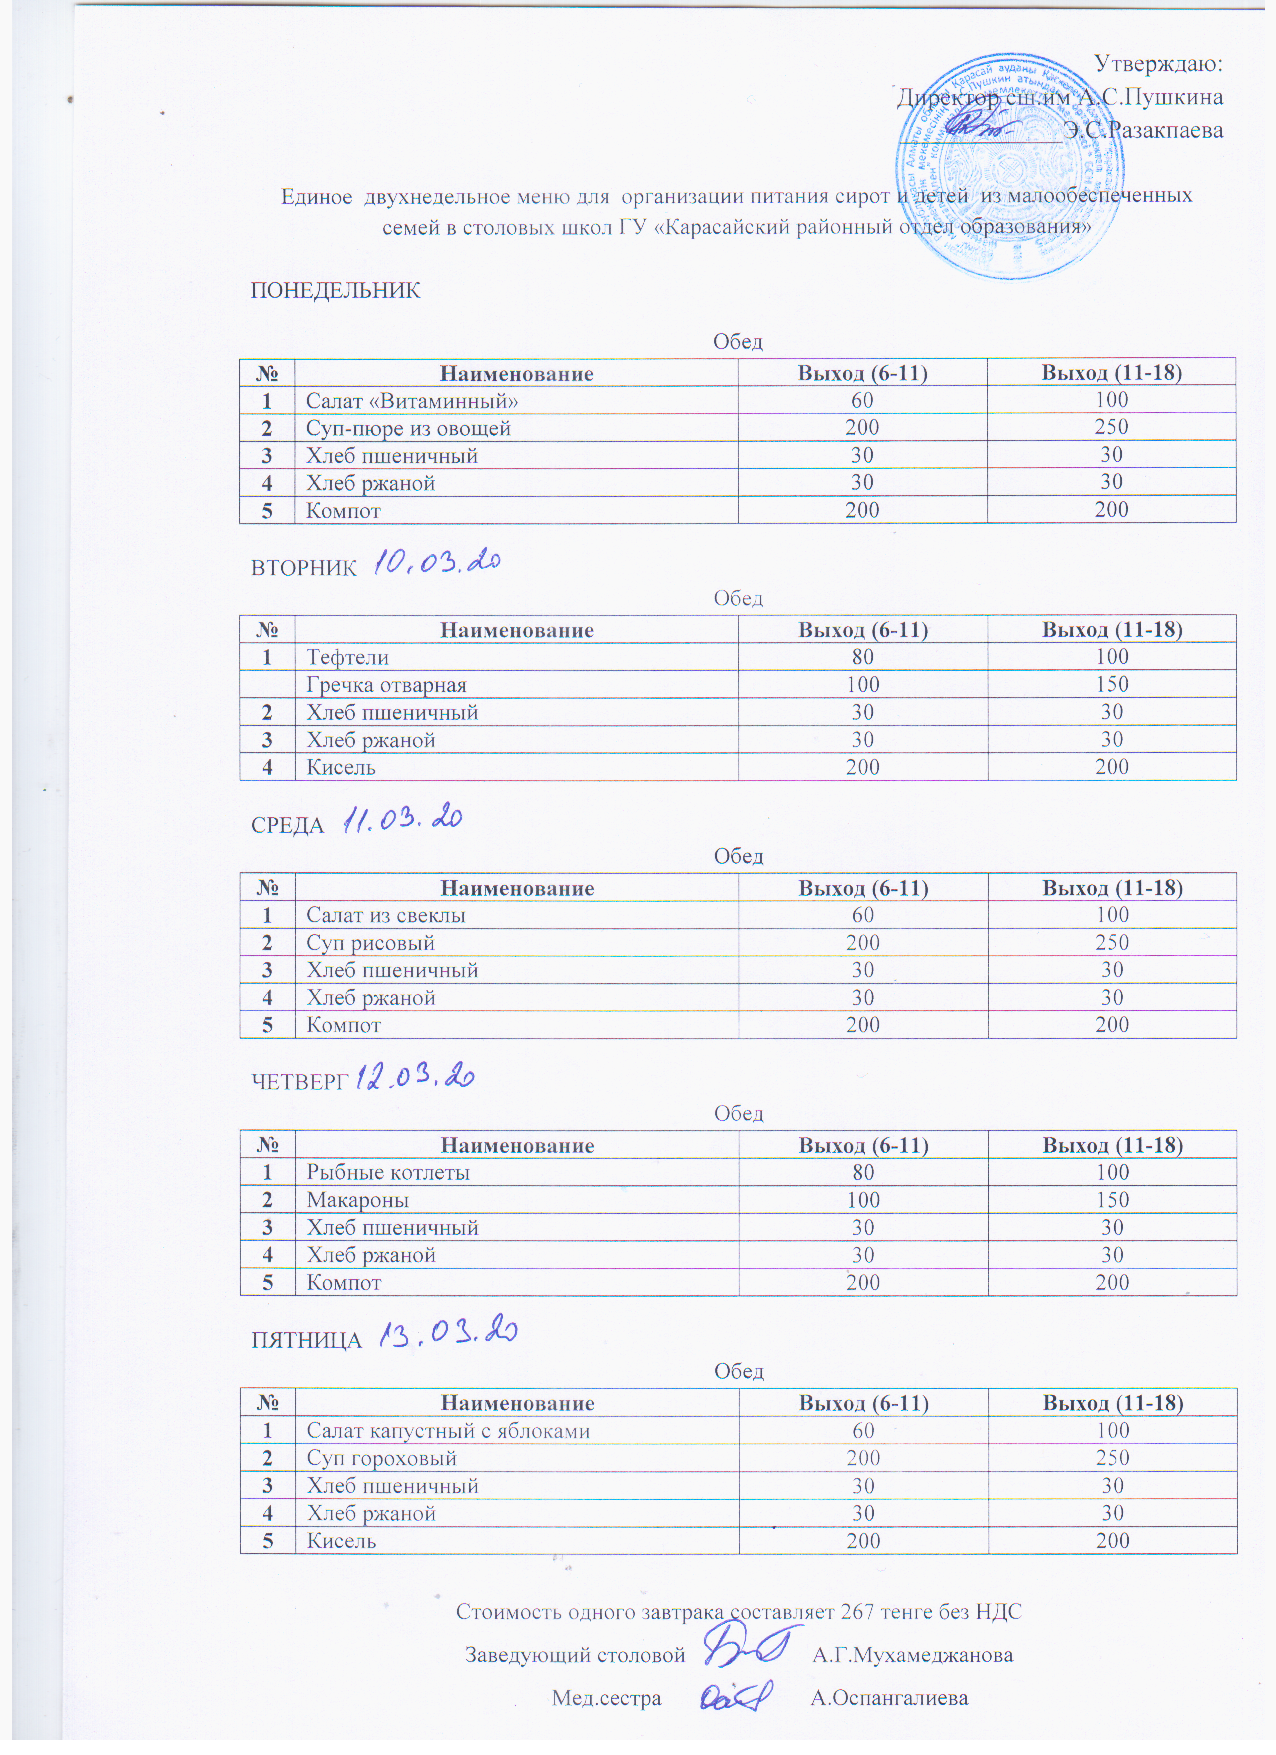 Утверждаю:
Директор сш.им А.С.Пушкина
Э.С.Разакпаева
Единое двухнедельное меню для организации питания сирот и детей из малообеспеченных
семей в столовых школ ГУ «Карасайский районный отдел образования»
ПОНЕДЕЛЬНИК
Обед
№ Наименование Выход (6-11) Выход (11-18)
1 Салат «Витаминный» 60 100
2 Суп-пюре из овощей 200 250
3 Хлеб пшеничный 30 30
4 Хлеб ржаной 30 30
5 Компот 200 200
ВТОРНИК 10.03.20
Обед
№ Наименование Выход (6-11) Выход (11-18)
1 Тефтели 80 100
Гречка отварная 100 150
2 Хлеб пшеничный 30 30
3 Хлеб ржаной 30 30
4 Кисель 200 200
СРЕДА 11.03.20
Обед
№ Наименование Выход (6-11) Выход (11-18)
1 Салат из свеклы 60 100
2 Суп рисовый 200 250
3 Хлеб пшеничный 30 30
4 Хлеб ржаной 30 30
5 Компот 200 200
ЧЕТВЕРГ 12.03.20
Обед
№ Наименование Выход (6-11) Выход (11-18)
1 Рыбные котлеты 80 100
2 Макароны 100 150
3 Хлеб пшеничный 30 30
4 Хлеб ржаной 30 30
5 Компот 200 200
ПЯТНИЦА 13.03.20
Обед
№ Наименование Выход (6-11) Выход (11-18)
1 Салат капустный с яблоками 60 100
2 Суп гороховый 200 250
3 Хлеб пшеничный 30 30
4 Хлеб ржаной 30 30
5 Кисель 200 200
Стоимость одного завтрака составляет 267 тенге без НДС
Заведующий столовой А.Г.Мухамеджанова
Мед.сестра А.Оспангалиева